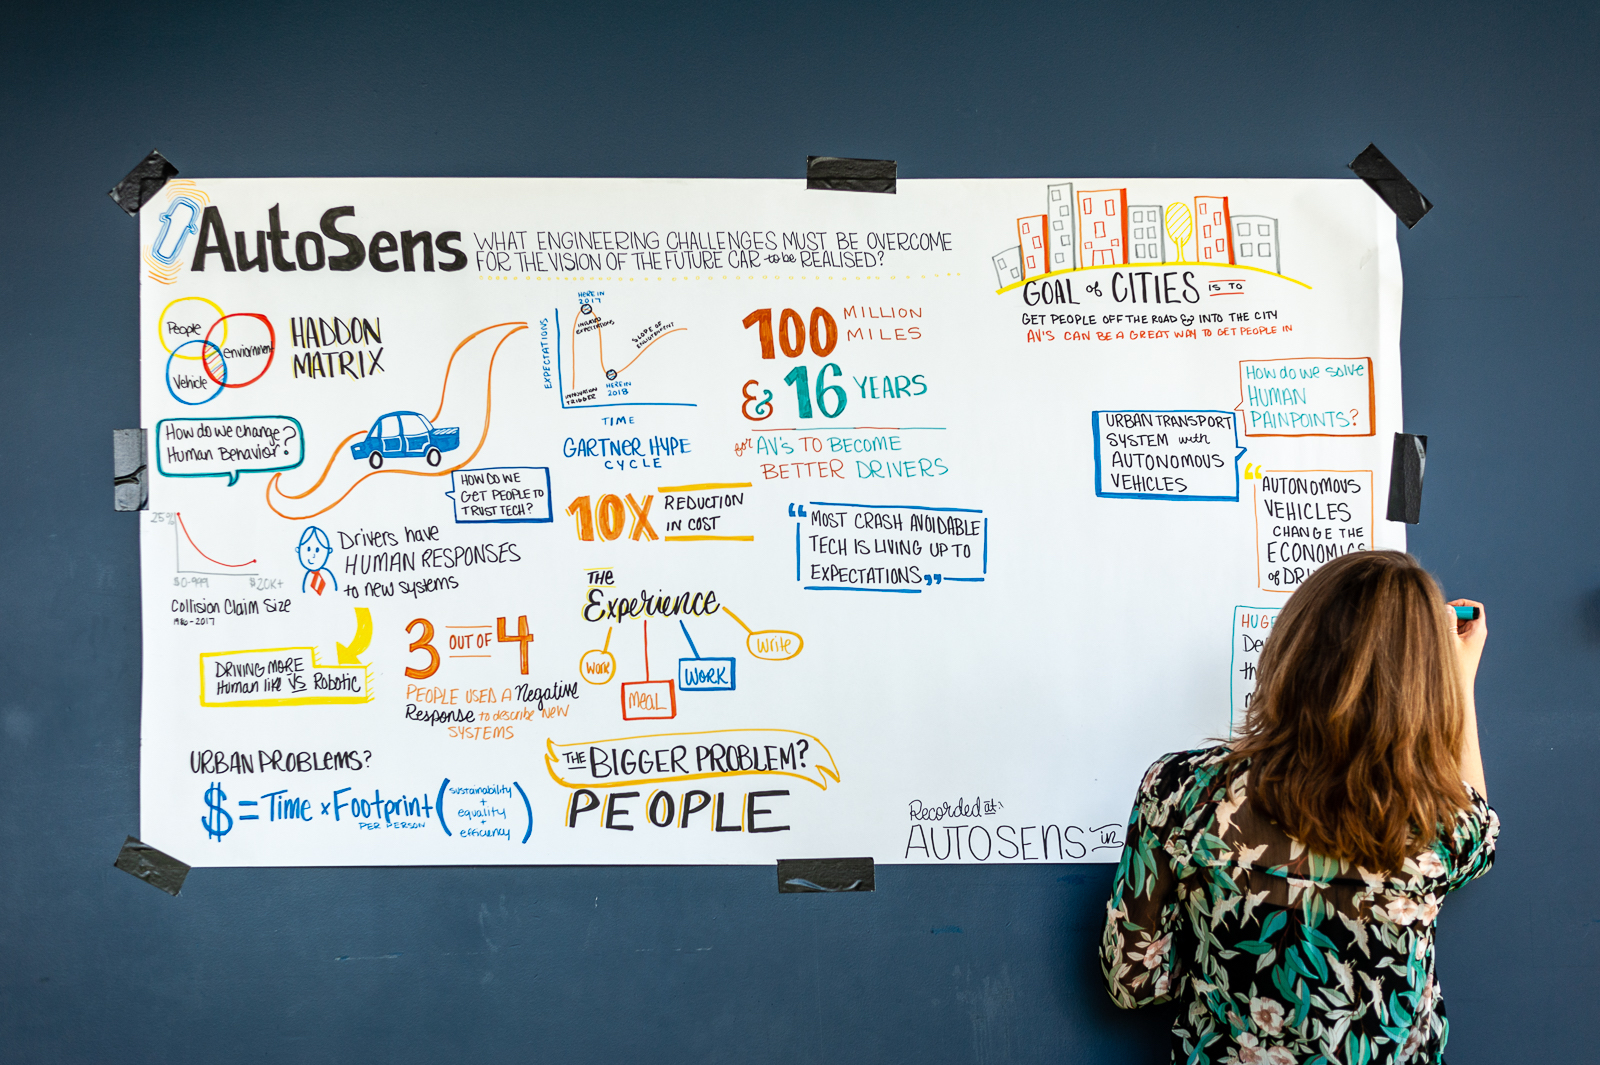 AutoSens
WHAT ENGINEERING CHALLENGES MUST BE OVERCOME
FOR THE VISION OF THE FUTURE CAR to be REALISED?
People
enviornment
Vehicle
HADDON
MATRIX
How do we change
Human Behavior?
HOW DO WE
GET PEOPLE TO
TRUST TECH?
25%
$0-999
$20K+
Collision Claim Size
1986-2017
Drivers have
HUMAN RESPONSES
to new systems
DRIVING MORE
Human like VS Robotic
3 OUT OF 4
PEOPLE USED A Negative
Response to describe NEW
SYSTEMS
URBAN PROBLEMS?
$ = Time x Footprint
PER PERSON
(sustainability
+
equality
+
efficiency)
EXPECTATIONS
HERE IN
2017
INFLATED
EXPECTATIONS
SLOPE OF
ENLIGHTENMENT
INNOVATION
TRIGGER
HERE IN
2018
TIME
GARTNER HYPE
CYCLE
10X REDUCTION
IN COST
THE
Experience
Work
MEAL
WORK
Write
THE BIGGER PROBLEM?
PEOPLE
100 MILLION
MILES
& 16 YEARS
for AV's TO BECOME
BETTER DRIVERS
“MOST CRASH AVOIDABLE
TECH IS LIVING UP TO
EXPECTATIONS”
GOAL of CITIES IS TO
GET PEOPLE OFF THE ROAD & INTO THE CITY
AV'S CAN BE A GREAT WAY TO GET PEOPLE IN
HOW do we solve
HUMAN
PAINPOINTS?
URBAN TRANSPORT
SYSTEM with
AUTONOMOUS
VEHICLES
“AUTONOMOUS
VEHICLES
CHANGE THE
ECONOMICS
of
Recorded at:
AUTOSENS in